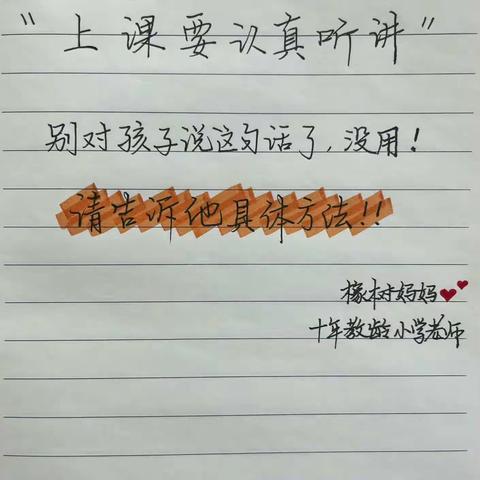 "上课要认真听讲"
别对孩子说这句话了，没用！
请告诉他具体方法!!
橡树妈妈
十年教龄小学老师